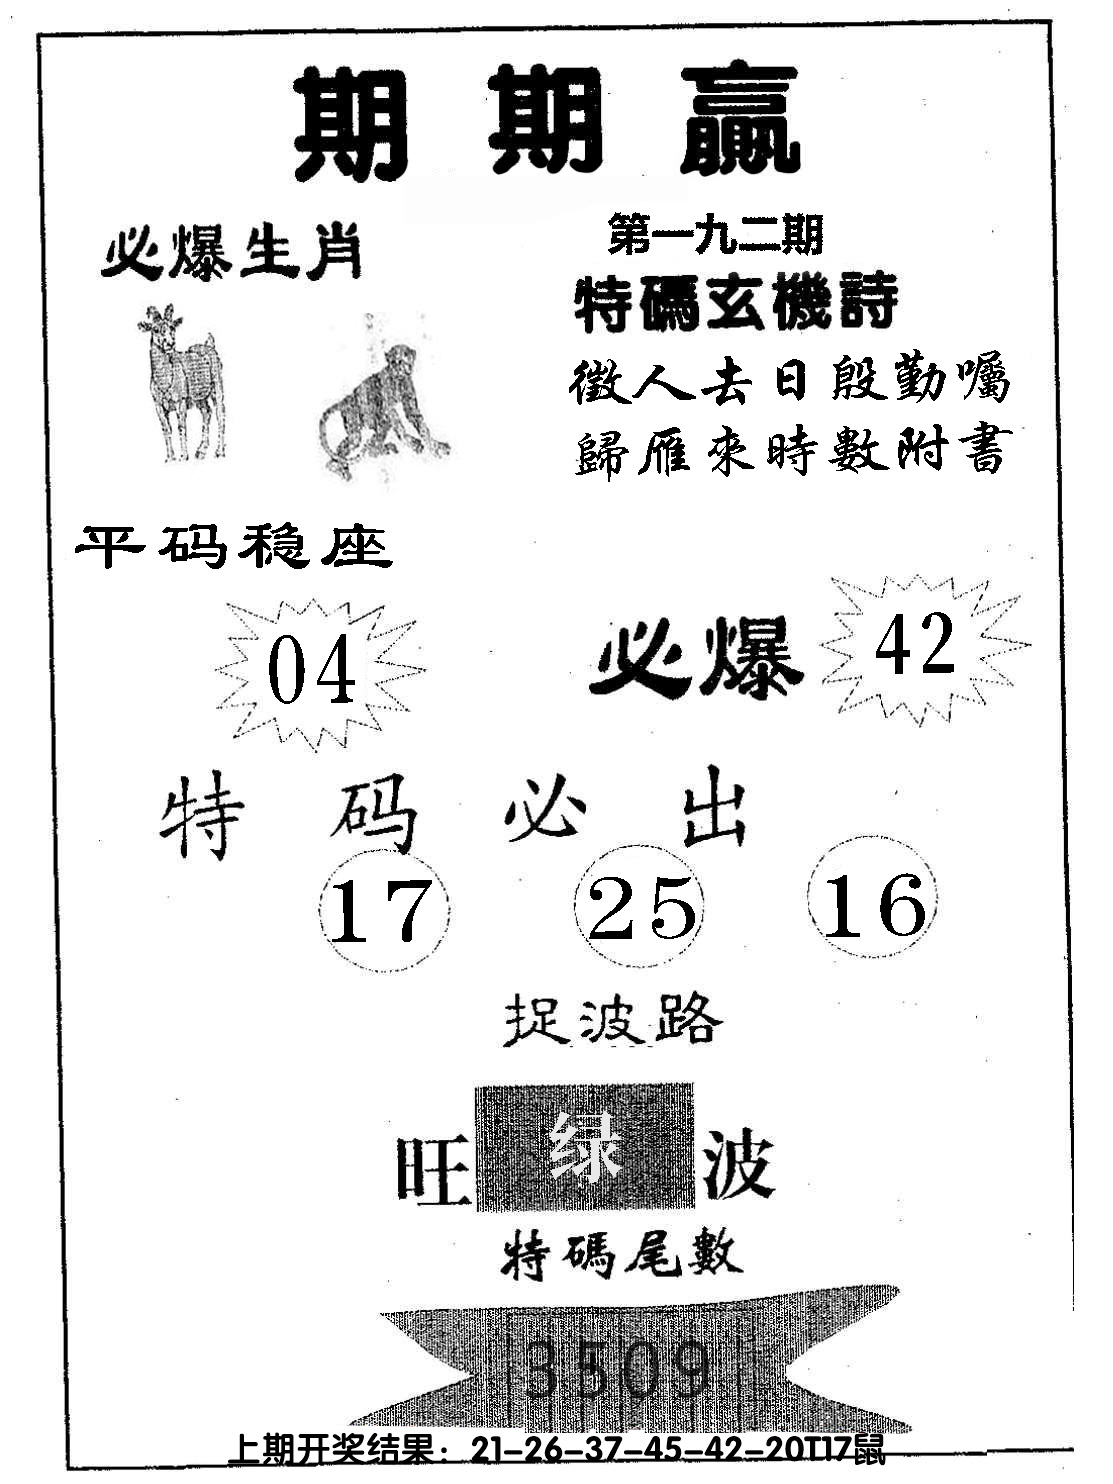 期期贏
必爆生肖
第一九二期
特碼玄機詩
徵人去日殷勤囑
歸雁來時數附書
平码稳座
04
必爆 42
特码必出
17 25 16
捉波路
旺 绿 波
特碼尾數
3509
上期开奖结果：21-26-37-45-42-20T17鼠